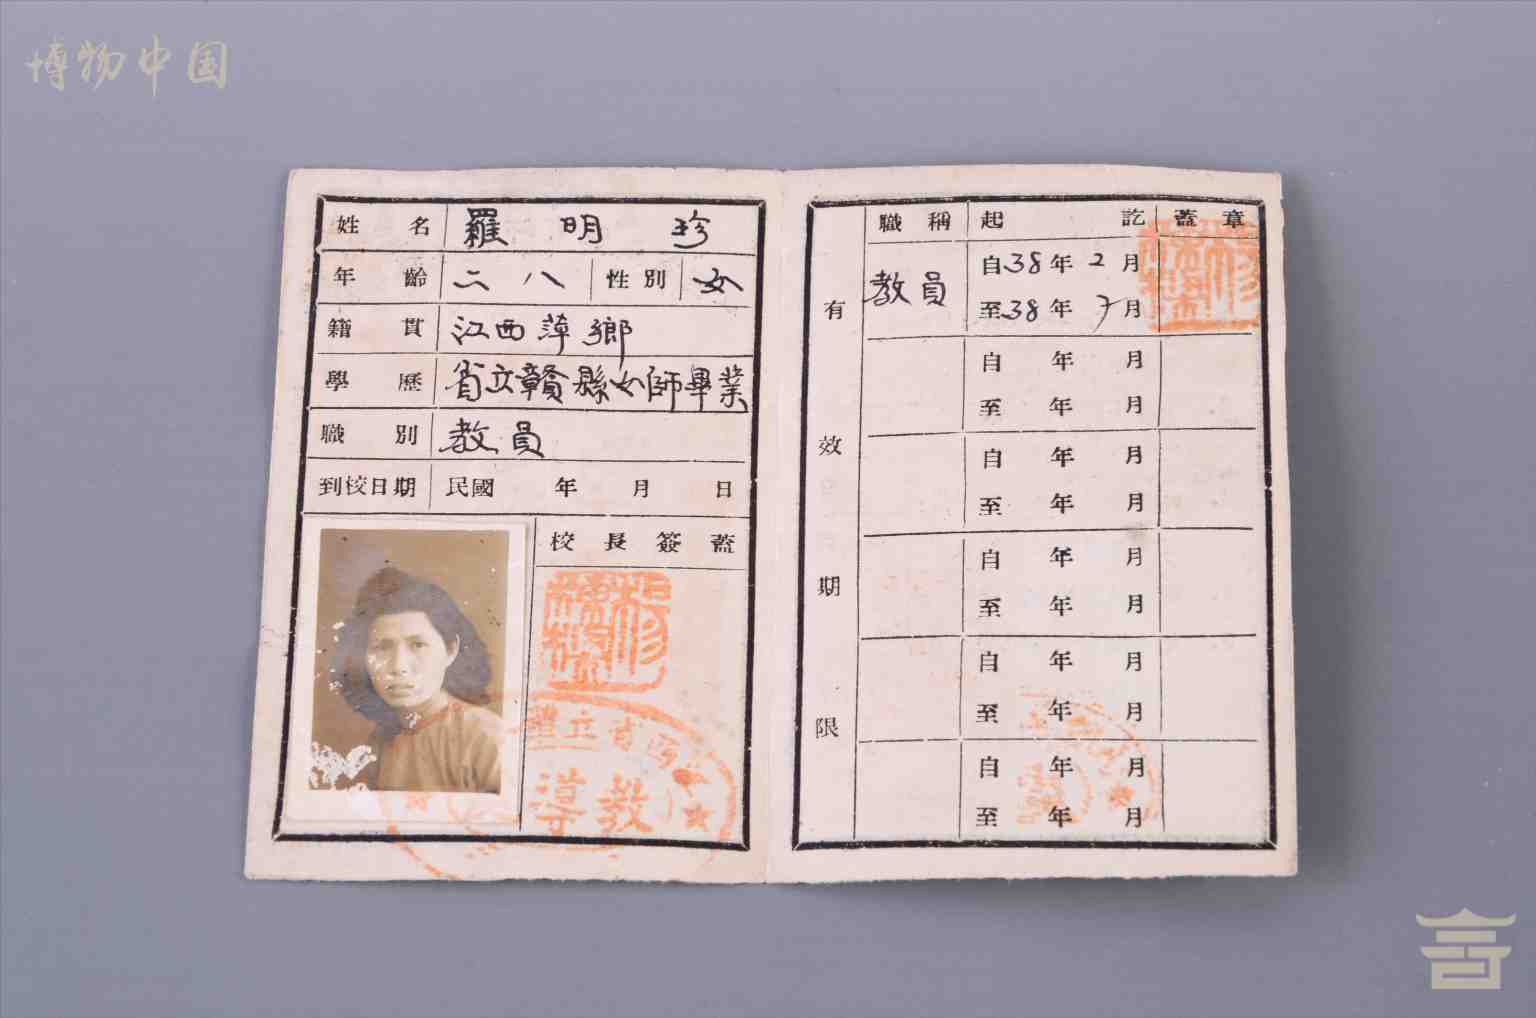 博物中国
姓名 羅明珍
年齡 二八 性別 女
籍貫 江西萍鄉
學歷 省立贛縣女師畢業
職別 教員
到校日期 民國 年 月 日
校長簽蓋
西省立
教導
有效期限
職稱 起 訖 蓋章
教員 自38年2月
至38年7月
自 年 月
至 年 月
自 年 月
至 年 月
自 年 月
至 年 月
自 年 月
至 年 月
自 年 月
至 年 月